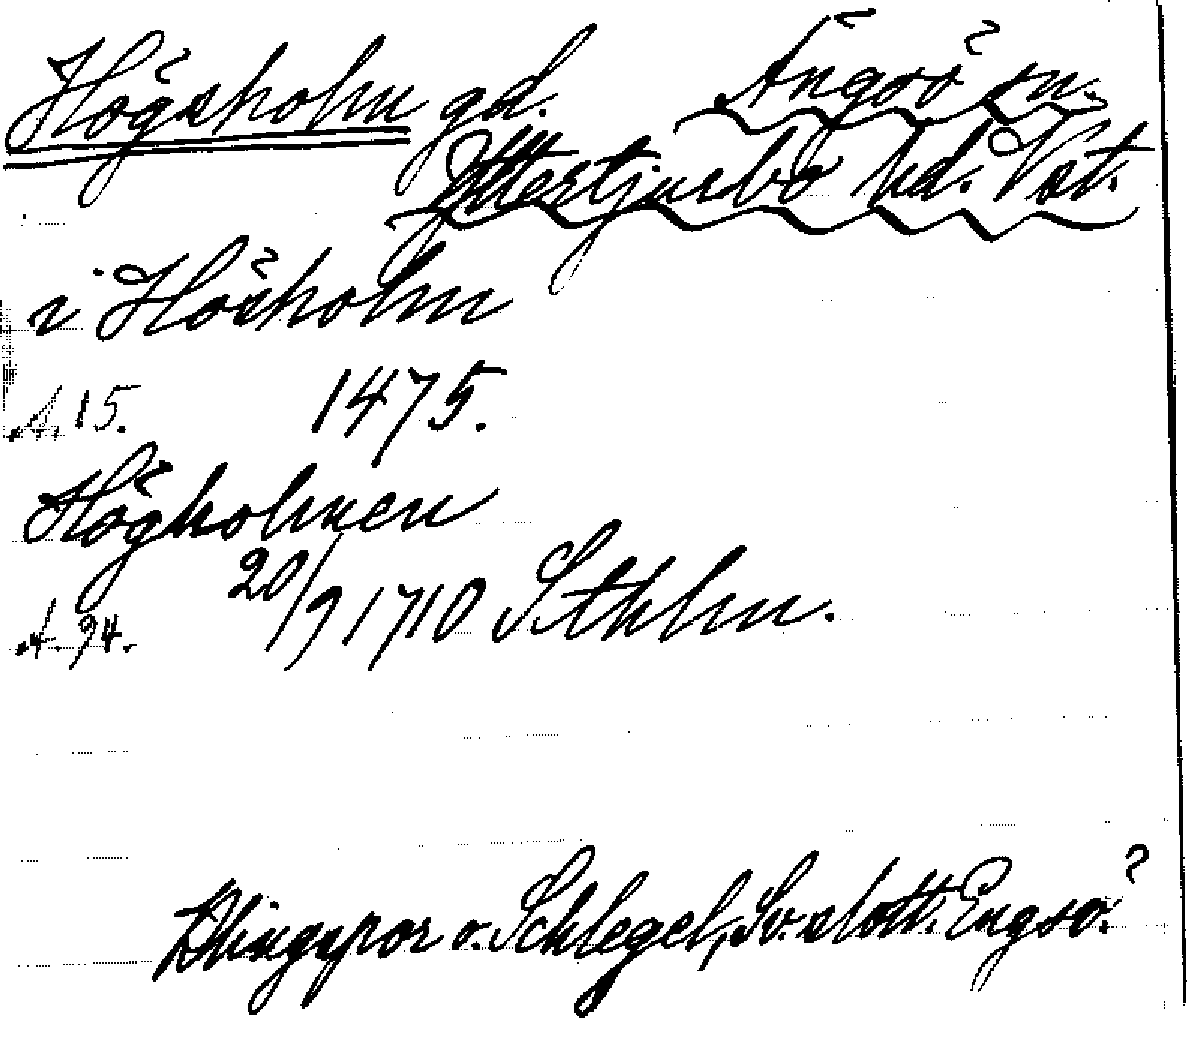 Högsholm gd. Ängsö sn.
Yttertjurbo hd. Vst.
i Hösholm
A. 15. 1475.
Högholmen
A. 94. 20/9 1710 Sthlm.
Klingspor o. Schlegel, Sv. slott. Engsö.